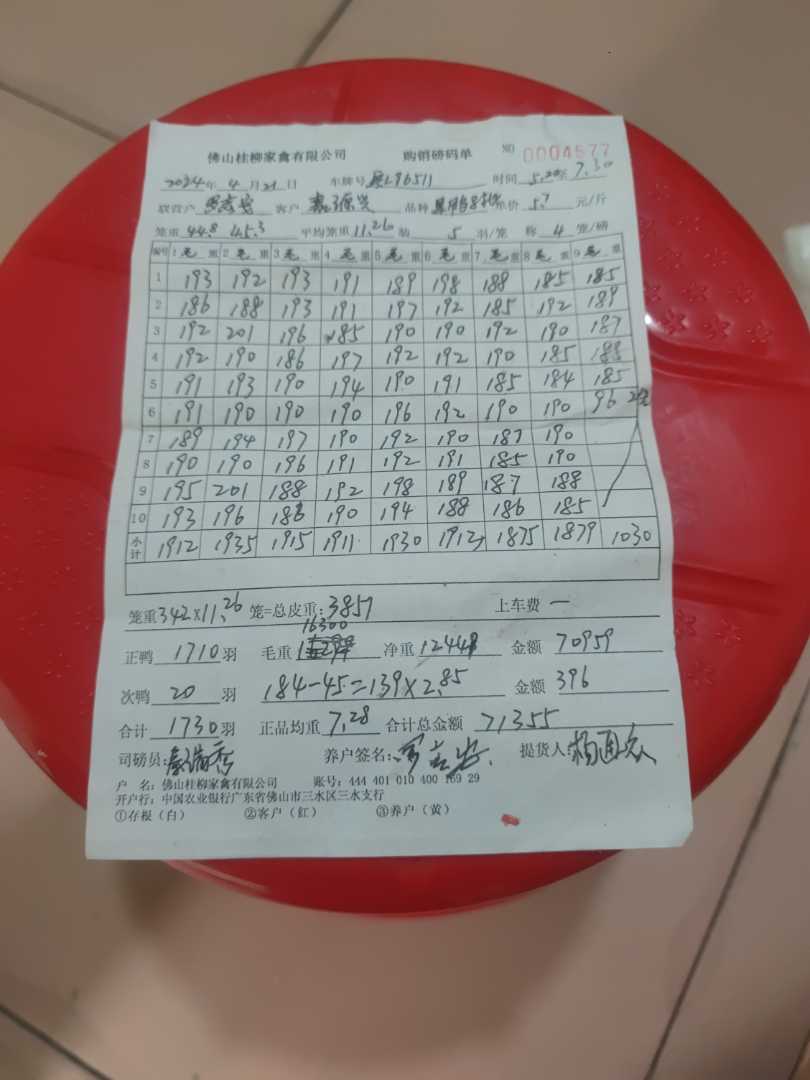 佛山桂柳家禽有限公司 购销磅码单 NO 0004577
2024年 4月21日 车牌号 L96511 时间 5.20 7.30
联营户 客户 品种 单价 5.7 元/斤
笼重 44.8 45.3 平均笼重 11.26 5 羽/笼 称 4 笼/磅
编号 1毛重 2毛重 3毛重 4毛重 5毛重 6毛重 7毛重 8毛重 9毛重
1 193 192 193 191 189 198 188 185 185
2 186 188 193 191 197 192 185 192 189
3 192 201 196 185 190 190 192 190 187
4 192 190 186 197 192 192 190 185 188
5 191 193 190 194 190 191 185 184 185
6 191 190 190 190 196 192 190 190 96 2笼
7 189 194 197 190 192 190 187 190
8 190 190 196 191 192 191 185 190
9 195 201 188 192 198 189 187 188
10 193 196 186 190 194 188 186 185
小计 1912 1935 1915 1911 1930 1912 1875 1879 1030
笼重 342×11.26 笼=总皮重:3851 上车费 一
正鸭 1710羽 毛重 16300 净重 12448 金额 70959
次鸭 20 羽 184-45=139×2.85 金额 396
合计 1730羽 正品均重 7.28 合计总金额 71355
司磅员: 养户签名: 提货人:
户 名:佛山桂柳家禽有限公司 账号:444 401 010 400 169 29
开户行:中国农业银行广东省佛山市三水区三水支行
①存根(白) ②客户(红) ③养户(黄)